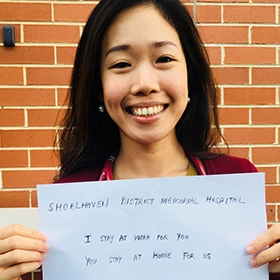 SHOALHAVEN DISTRICT MEMORIAL HOSPITAL
I STAY AT WORK FOR YOU
YOU STAY AT HOME FOR US